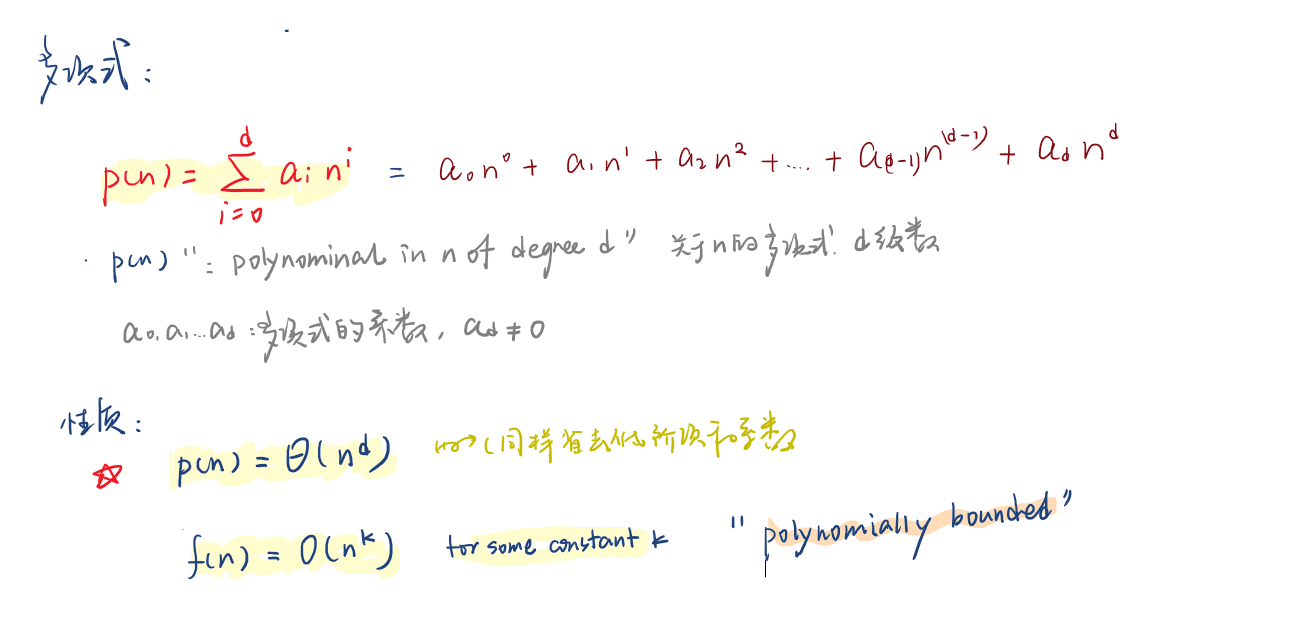 多项式：
p(n) = ∑_{i=0}^{d} a_i n^i = a_0 n^0 + a_1 n^1 + a_2 n^2 + .... + a_(d-1) n^(d-1) + a_d n^d
p(n) "： polynominal in n of degree d " 关于n的多项式. d级数
a_0, a_1 ... a_d : 多项式的系数, a_d ≠ 0
性质：
p(n) = Θ(n^d) (同样省去低阶项和系数
f(n) = O(n^k) for some constant k " polynomially bounded "